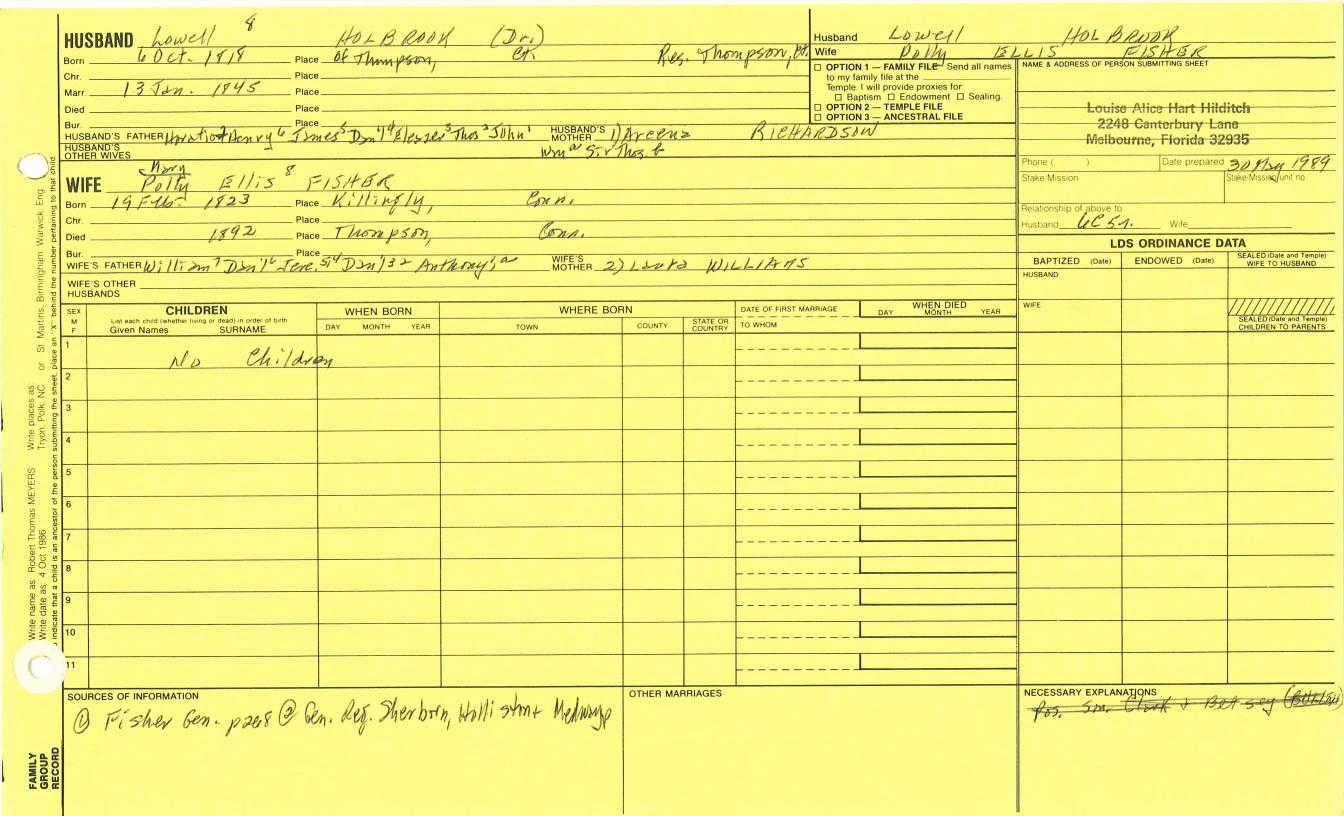 HUSBAND Lowell 8 HOLBROOK (Dr.)
Born 6 Oct. 1818 Place of Thompson, Ct. Res. Thompson, Ct.
Chr. Place
Marr 13 Jan. 1845 Place
Died Place
Bur. Place
HUSBAND'S FATHER Horatio7 Henry6 James5 Dan'l4 Thos2 John1 HUSBAND'S MOTHER 1) Areena RICHARDSON
HUSBAND'S OTHER WIVES
Mary
WIFE Polly Ellis 8 FISHER
Born 19 Feb. 1823 Place Killingly, Conn.
Chr. Place
Died 1892 Place Thompson, Conn.
Bur. Place
WIFE'S FATHER William7 Dan'l6 Jere.5 Dan'l32 Anthony1a WIFE'S MOTHER 2) Laura WILLIAMS
WIFE'S OTHER HUSBANDS
Husband Lowell HOLBROOK
Wife Polly ELLIS FISHER
OPTION 1 — FAMILY FILE Send all names
to my family file at the
Temple. I will provide proxies for:
Baptism Endowment Sealing.
OPTION 2 — TEMPLE FILE
OPTION 3 — ANCESTRAL FILE
NAME & ADDRESS OF PERSON SUBMITTING SHEET
Louise Alice Hart Hilditch
2248 Canterbury Lane
Melbourne, Florida 32935
Phone ( ) Date prepared 30 May 1989
Stake Mission Stake-Mission/unit no
Relationship of above to
Husband 6C5r. Wife
LDS ORDINANCE DATA
BAPTIZED (Date) ENDOWED (Date) SEALED (Date and Temple) WIFE TO HUSBAND
HUSBAND
WIFE
SEALED (Date and Temple)
CHILDREN TO PARENTS
SEX M F
CHILDREN
List each child (whether living or dead) in order of birth
Given Names SURNAME
WHEN BORN
DAY MONTH YEAR
WHERE BORN
TOWN COUNTY STATE OR COUNTRY
DATE OF FIRST MARRIAGE
TO WHOM
WHEN DIED
DAY MONTH YEAR
1 No Children
2
3
4
5
6
7
8
9
10
11
SOURCES OF INFORMATION
① Fisher Gen. p268 ② Gen. Reg. Sherborn, Holliston + Medway
OTHER MARRIAGES
NECESSARY EXPLANATIONS
Pos. Sn. Clark + Betsey
FAMILY GROUP RECORD
Write name as: Robert Thomas MEYERS Write places as: Tryon, Polk, NC or St Martins, Birmingham, Warwick, Eng
Write date as: 4 Oct 1986
To indicate that a child is an ancestor of the person submitting the sheet, place an "X" behind the number pertaining to that child